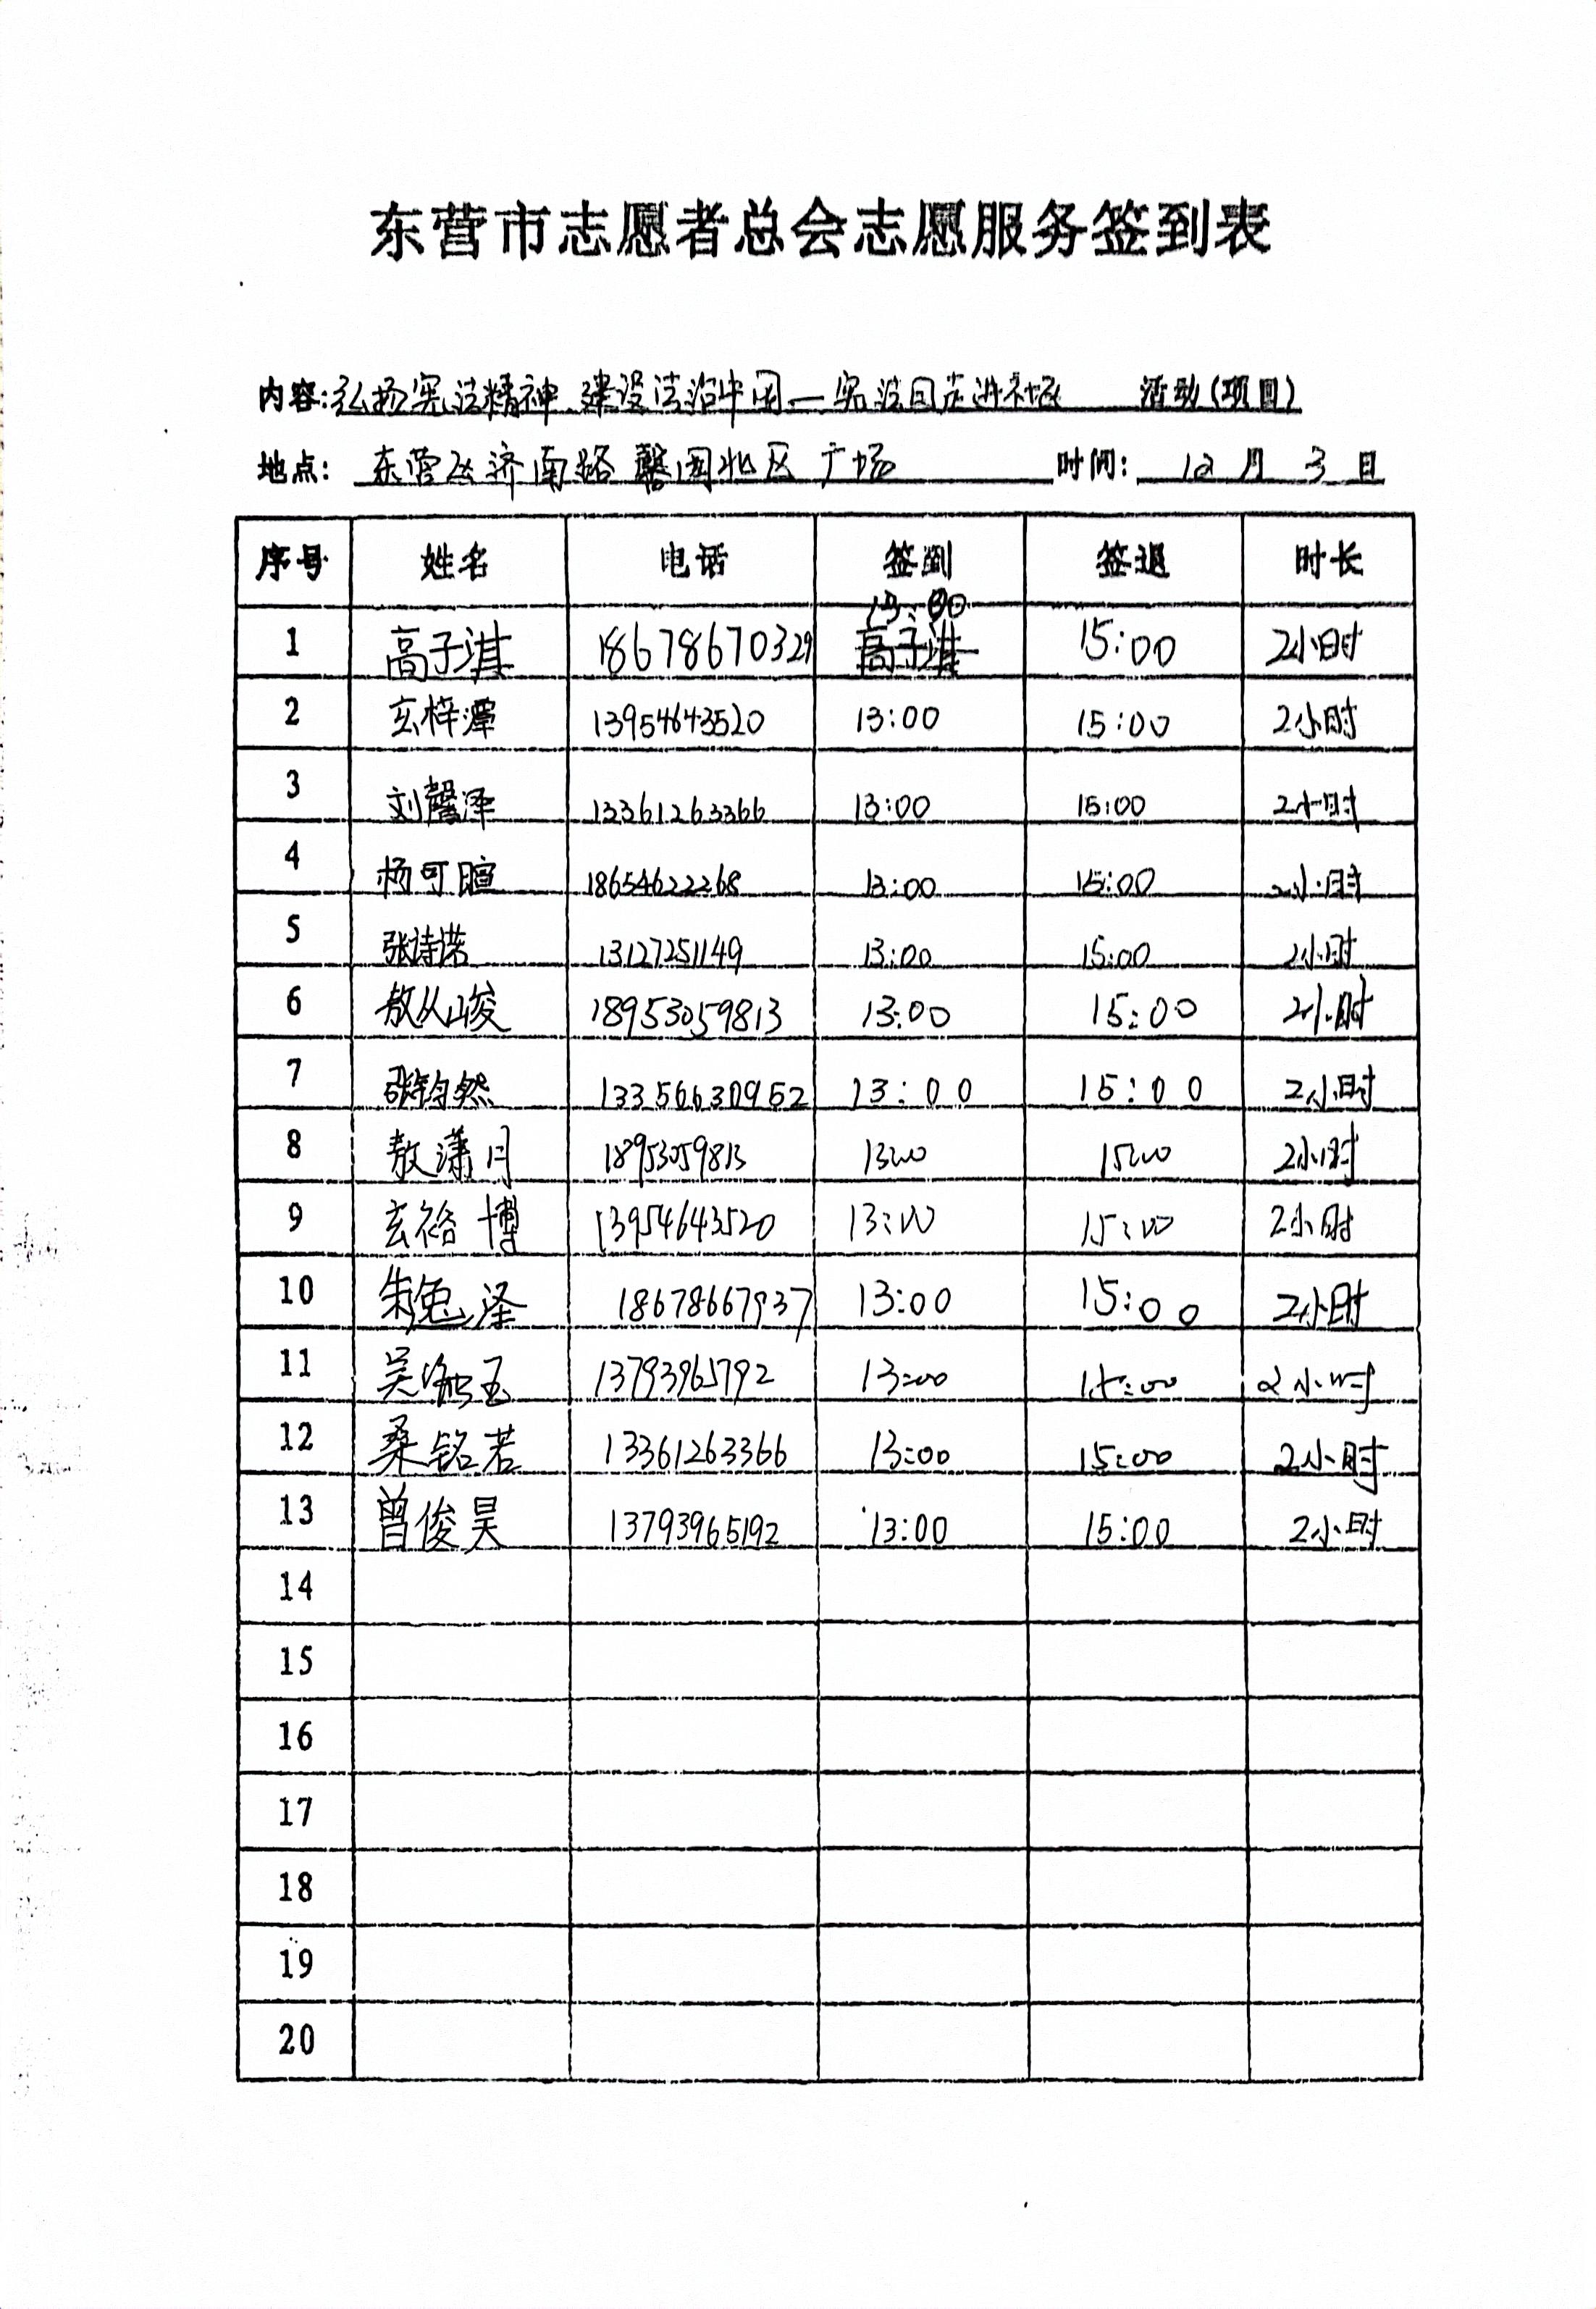 东营市志愿者总会志愿服务签到表
内容:弘扬宪法精神 建设法治中国—宪法日走进社区 活动(项目)
地点: 东营区济南路 馨园北区 广场 时间: 12 月 3 日
序号 姓名 电话 签到 签退 时长
13:00
1 高子淇 18678670329 高子淇 15:00 2小时
2 玄梓潭 13954643520 13:00 15:00 2小时
3 刘馨泽 13361263366 13:00 15:00 2小时
4 杨可暄 18654622268 13:00 15:00 2小时
5 张诗诺 13127251149 13:00 15:00 2小时
6 敖从峻 18953059813 13:00 15:00 2小时
7 张钧然 13356630952 13:00 15:00 2小时
8 敖潇月 18953059813 13:00 15:00 2小时
9 玄裕博 13954643520 13:00 15:00 2小时
10 朱 泽 18678667937 13:00 15:00 2小时
11 吴 玉 13793965792 13:00 15:00 2小时
12 桑铭若 13361263366 13:00 15:00 2小时
13 曾俊昊 13793965192 13:00 15:00 2小时
14
15
16
17
18
19
20